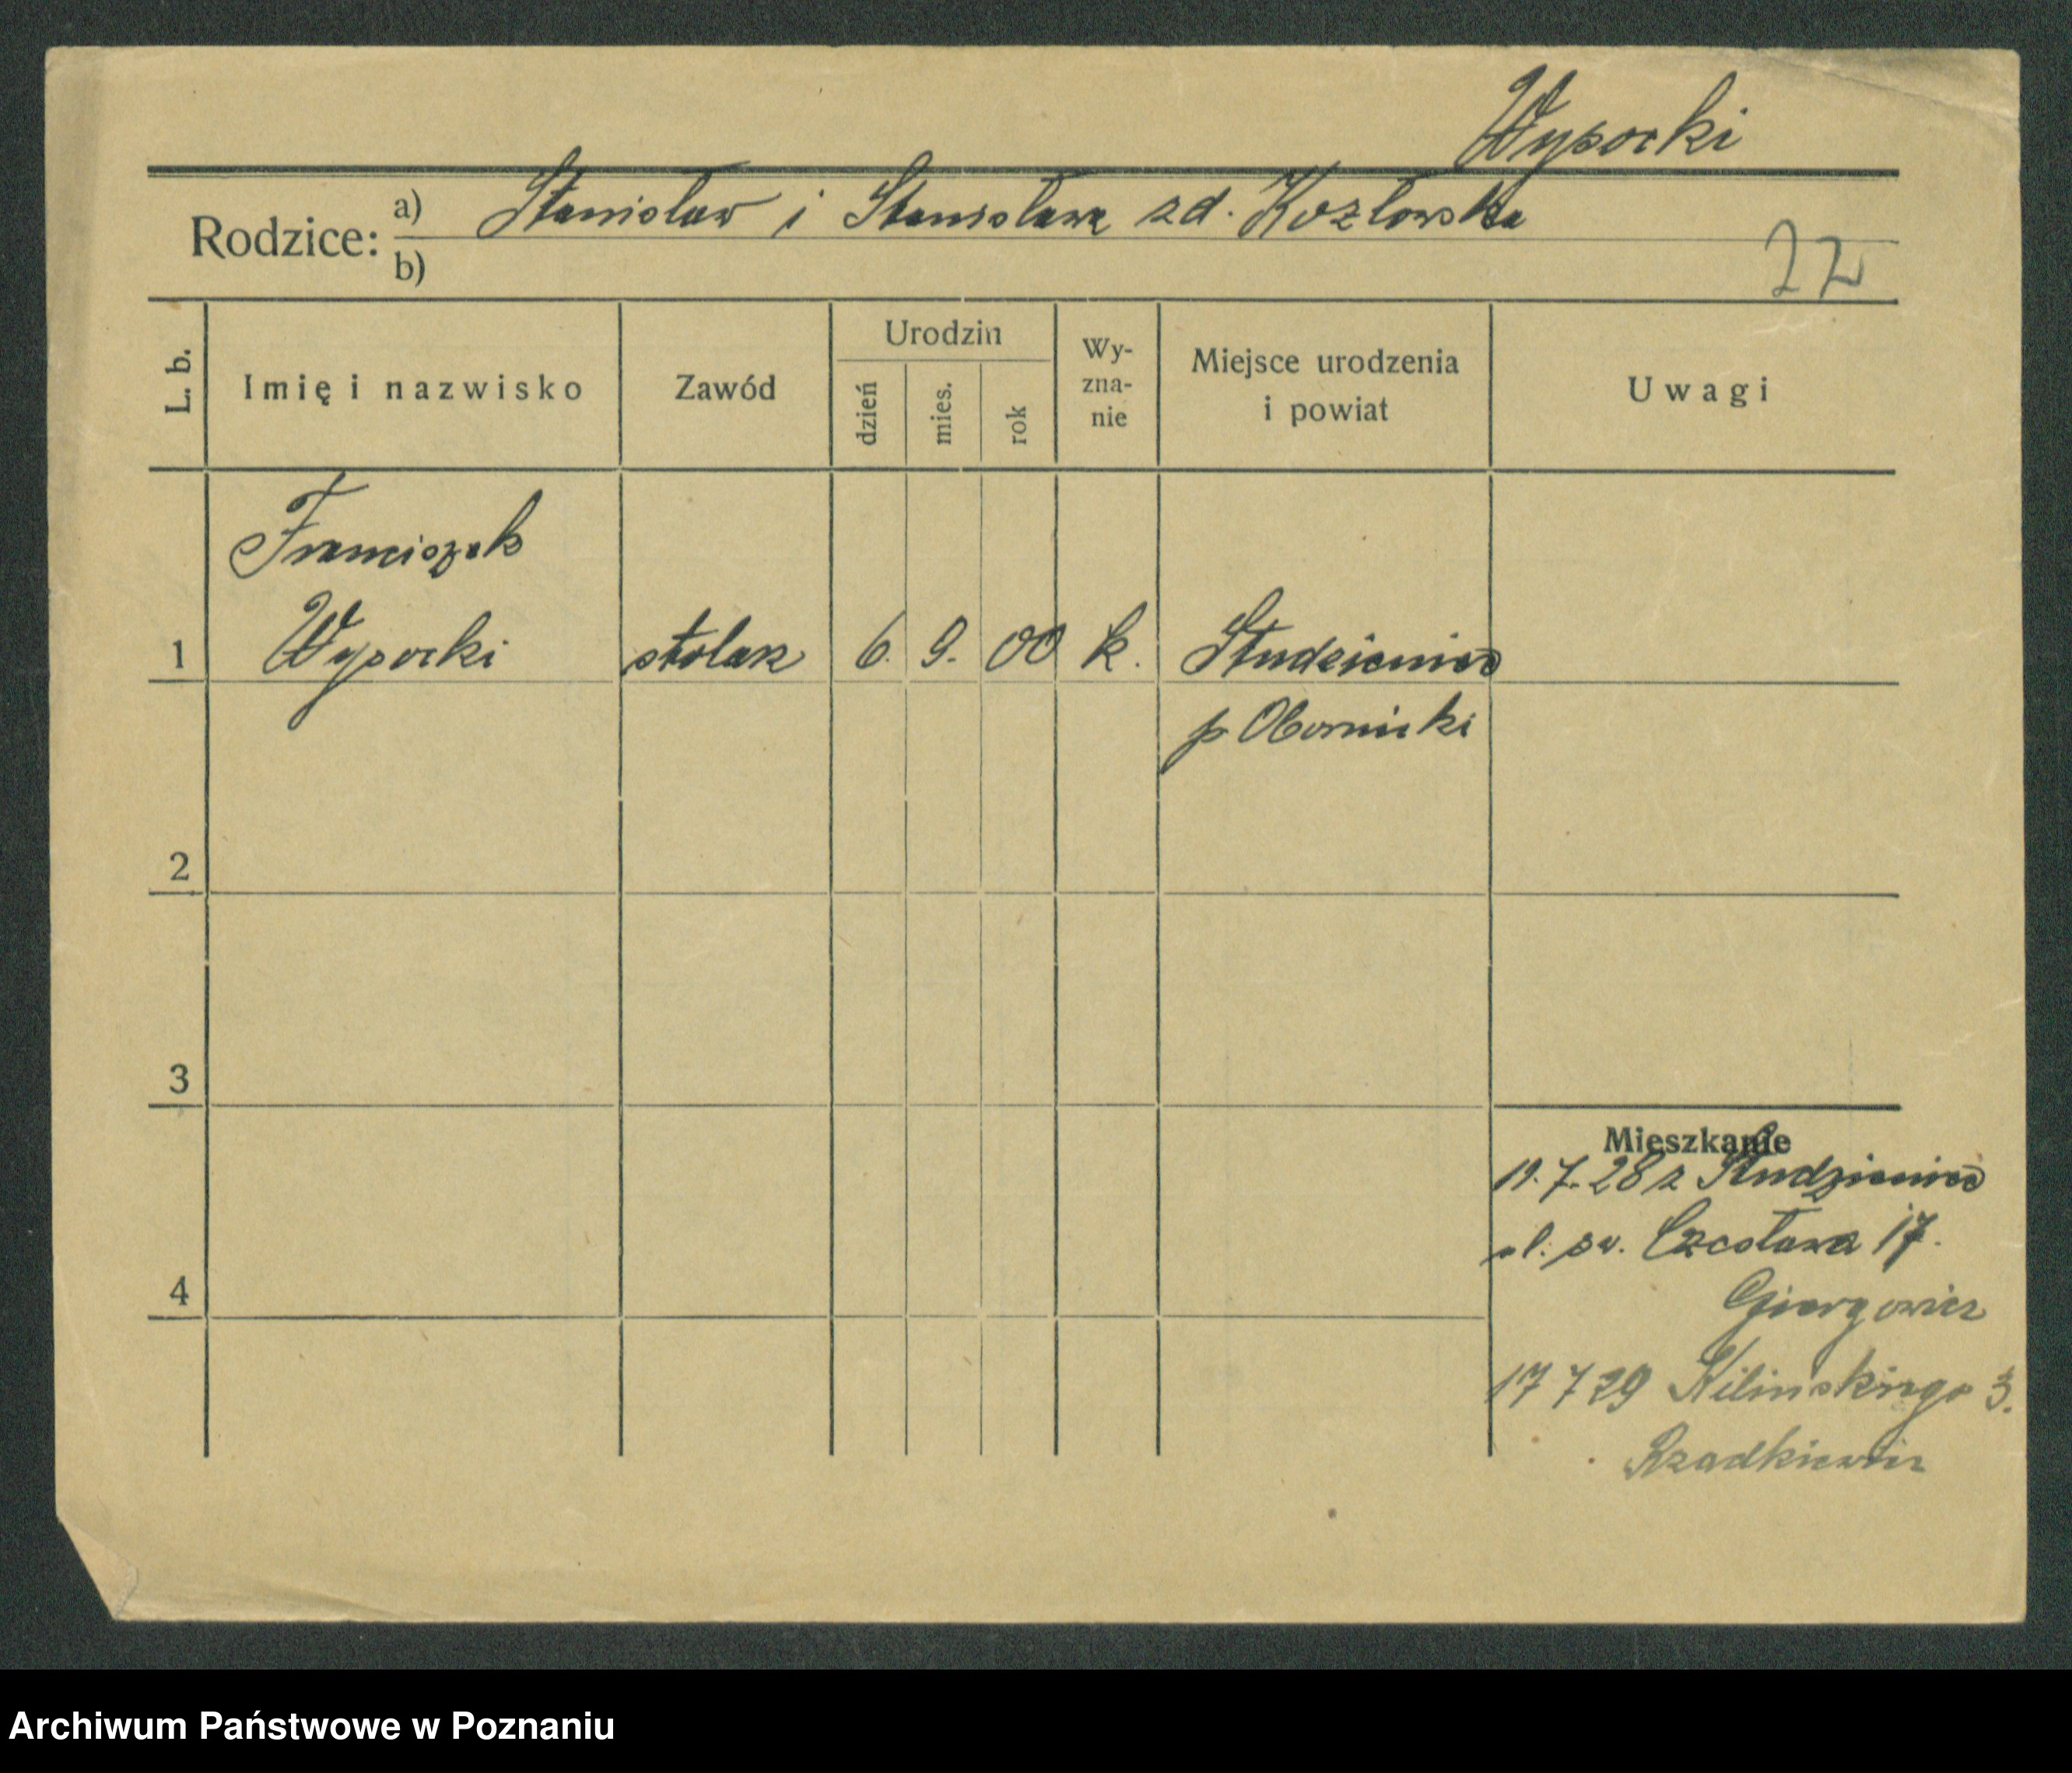 Wysocki
Rodzice: a) Stanisław i Stanisława zd. Kozłowska
b)
22
L. b. Imię i nazwisko Zawód Urodzin dzień mies. rok Wy-zna-nie Miejsce urodzenia i powiat Uwagi
Franciszek
1 Wysocki stolarz 6. 9. 00 k. Studzieniec
p Oborniki
2
3
Mieszkanie
19.7.28 z Studzieniec
ul. św. Czesława 17.
4
17 7 29 Kilińskiego 3.
Rzadkiewicz
Archiwum Państwowe w Poznaniu